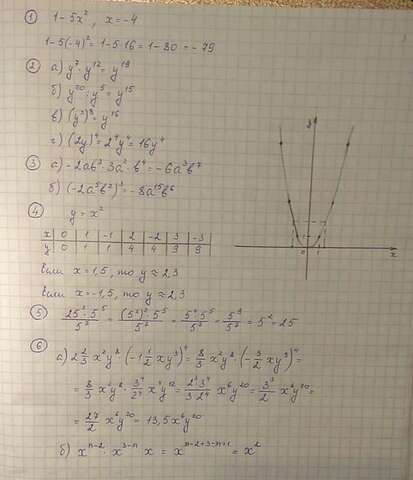 1 1-5x², x=-4
1-5(-4)²=1-5·16=1-80=-79
2 а) y⁷·y¹²=y¹⁹
б) y²⁰:y⁵=y¹⁵
в) (y²)⁸=y¹⁶
г) (2y)⁴=2⁴y⁴=16y⁴
3 а) -2ab³·3a²·b⁴=-6a³b⁷
б) (-2a⁵b²)³=-8a¹⁵b⁶
4 y=x²
x 0 1 -1 2 -2 3 -3
y 0 1 1 4 4 9 9
Если x=1,5, то y≈2,3
Если x=-1,5, то y≈2,3
y
x
0 1
5 25²·5⁵/5⁷=(5²)²·5⁵/5⁷=5⁴·5⁵/5⁷=5⁹/5⁷=5²=25
6 а) 2 2/3 x²y⁸·(-1 1/2 xy³)⁴=8/3 x²y⁸·(-3/2 xy³)⁴=
=8/3 x²y⁸·3⁴/2⁴ x⁴y¹²=2³3⁴/3·2⁴ x⁶y²⁰=3³/2 x⁶y²⁰=
=27/2 x⁶y²⁰=13,5x⁶y²⁰
б) xⁿ⁻²·x³⁻ⁿ·x=xⁿ⁻²⁺³⁻ⁿ⁺¹=x²